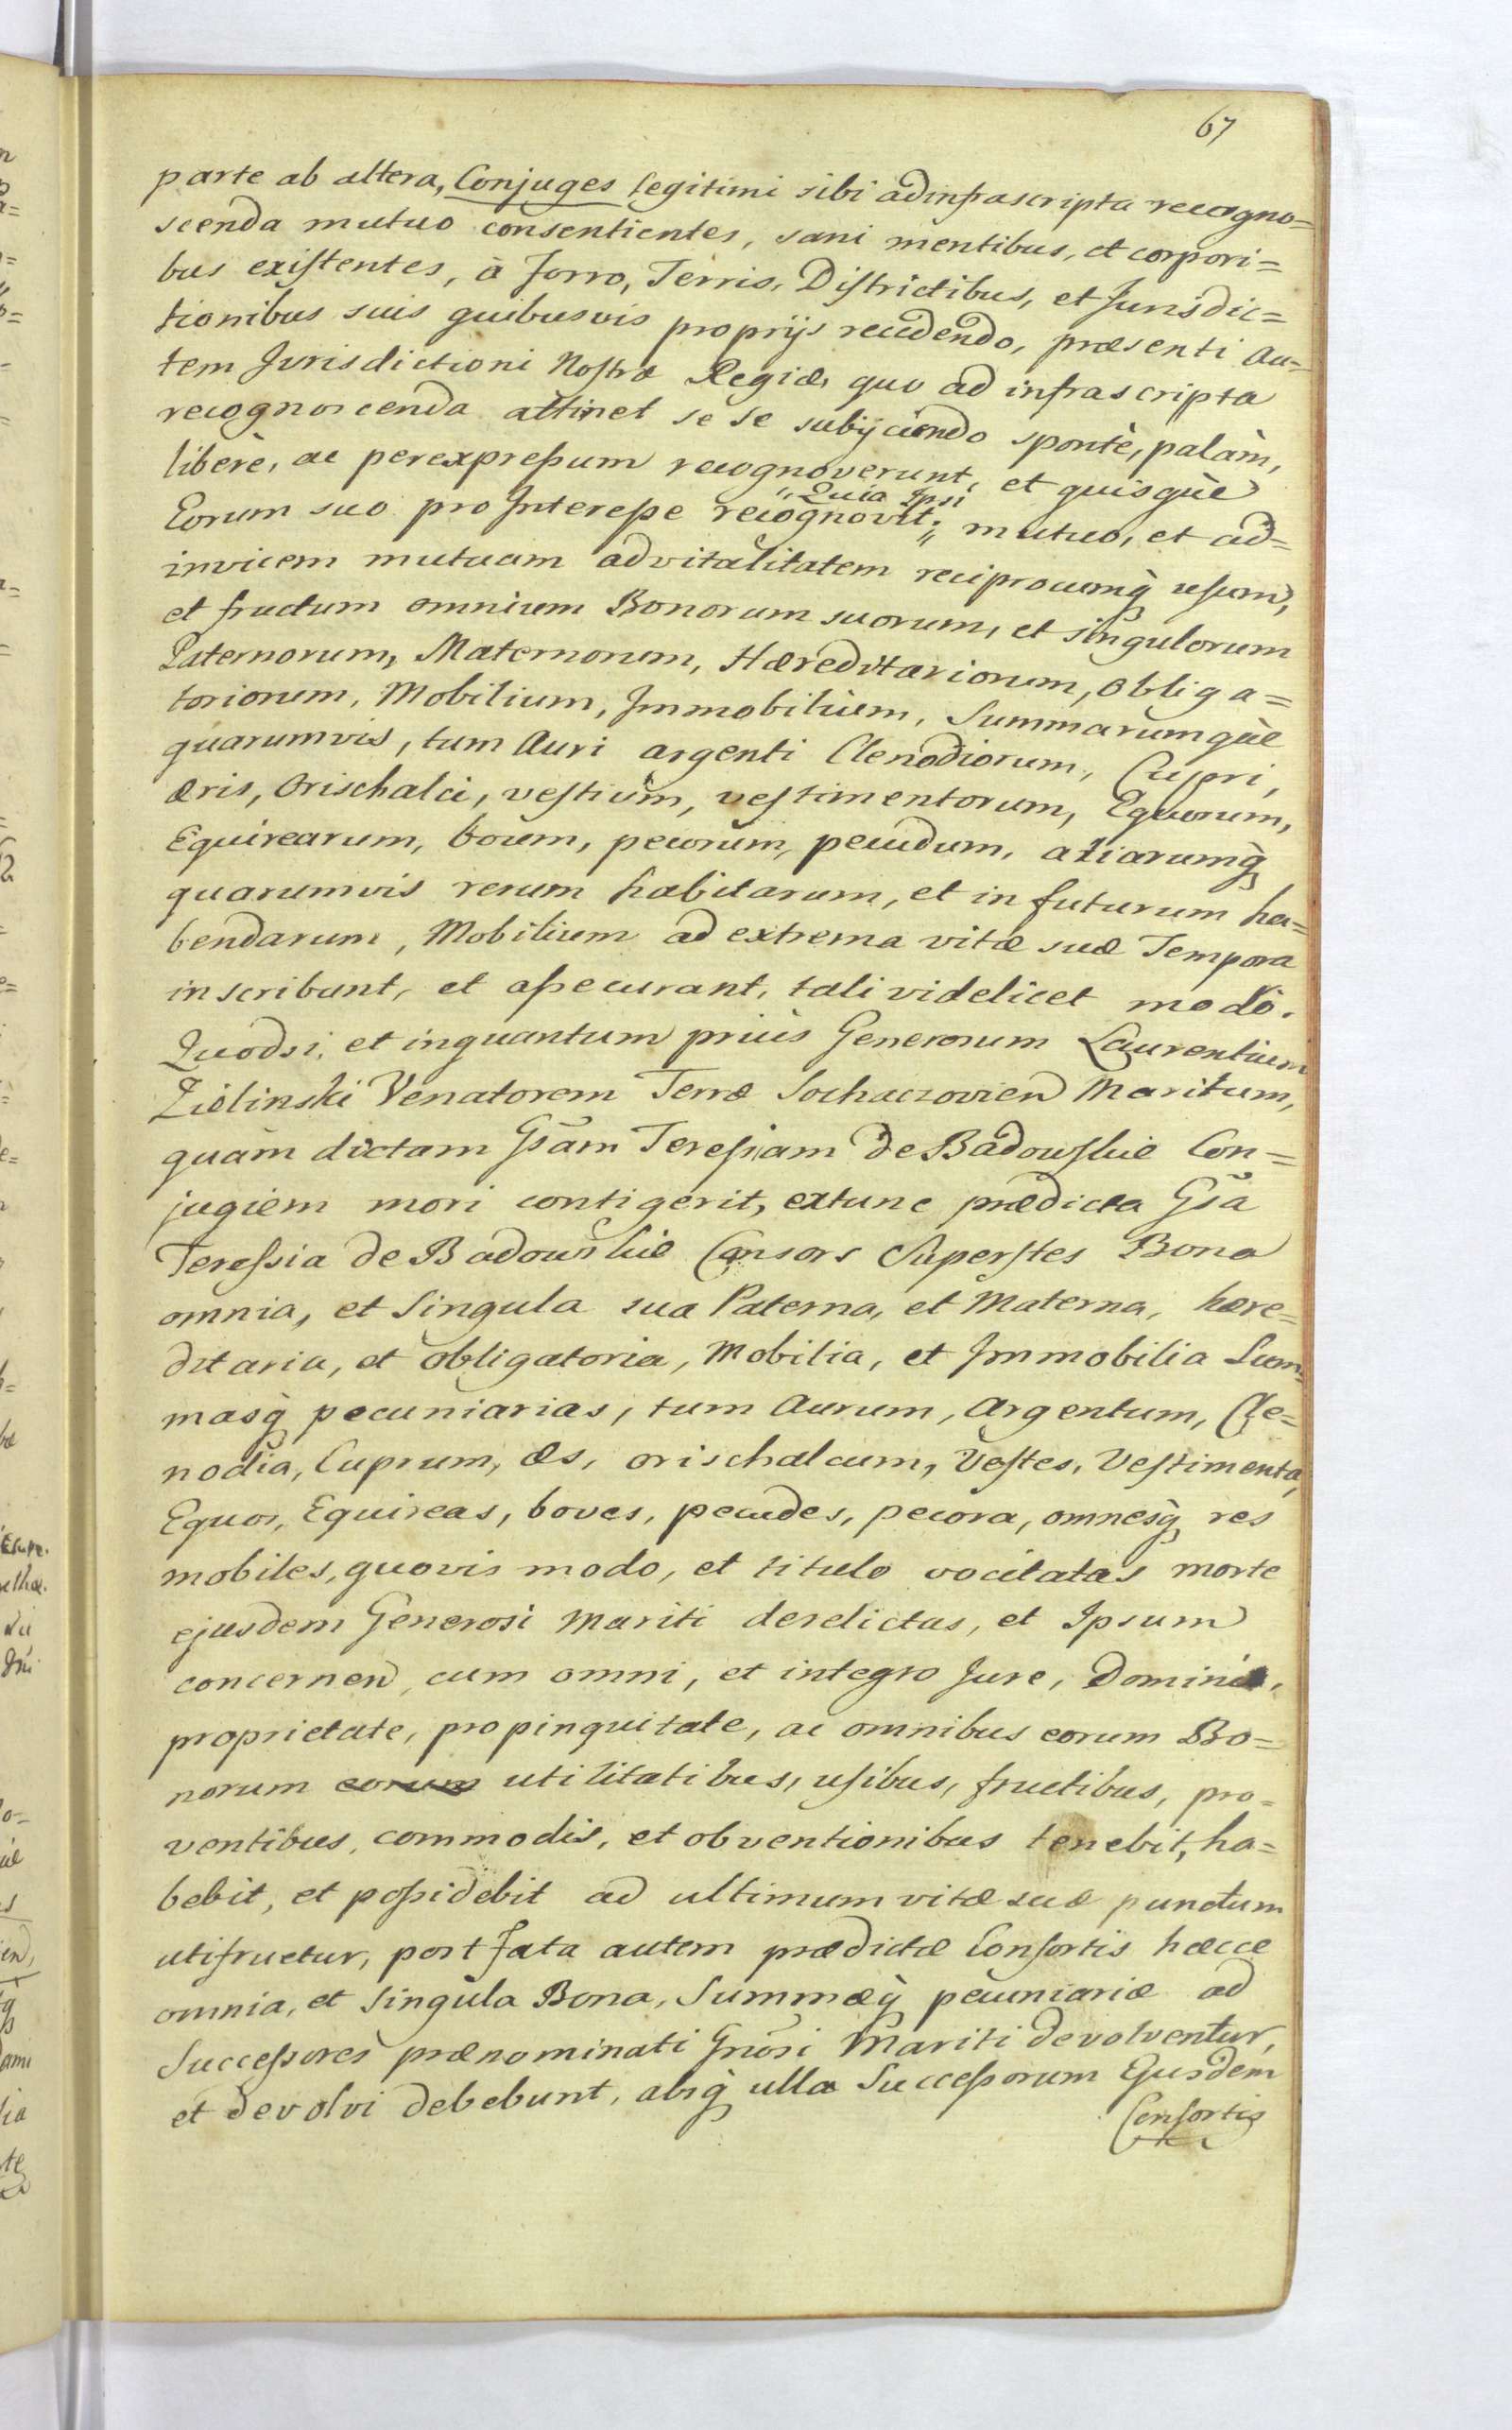 67
parte ab altera, Conjuges legitimi sibi ad infrascripta recogno=
scenda mutuo consentientes, sani mentibus, et corpori=
bus existentes, à Forro, Terris, Districtibus, et Jurisdic=
tionibus suis quibusvis proprijs recedendo, præsenti au=
tem Jurisdictioni Nostræ Regiæ, quo ad infrascripta
recognoscenda attinet se se subijciendo spontè, palàm,
liberè, ac per expressum recognoverunt, et quisquè
"Quia Ipsi
Eorum suo pro Interesse recognovit;" mutuo, et ad=
invicem mutuam advitalitatem reciprocumq̀ usum,
et fructum omnium Bonorum suorum, et singulorum
Paternorum, Maternorum, Hæreditariorum, obliga=
toriorum, Mobilium, Immobilium, Summarumquè
quarumvis, tum Auri argenti Clenodiorum, Cupri,
æris, orischalci, vestium, vestimentorum, Equorum,
Equirearum, boum, pecorum, pecudum, aliarumq̀
quarumvis rerum habitarum, et in futurum ha=
bendarum, Mobilium ad extrema vitæ suæ Tempora
inscribunt, et assecurant, tali videlicet modô.
Quodsi, et inquantum priùs Generosum Laurentium
Zielinski Venatorem Terræ Sochaczovien Maritum,
quàm dictam Gsam Teressiam de Badowskie Con=
jugem mori contigerit, extunc prædicta Gsa
Teressia de Badowskie Consors Superstes Bona
omnia, et singula sua Paterna, et Materna, hære=
ditaria, et obligatoria, Mobilia, et Immobilia Sum=
masq̀ pecuniarias, tum Aurum, Argentum, Cle=
nodia, Cuprum, æs, orischalcum, Vestes, Vestimenta,
Equos, Equireas, boves, pecudes, pecora, omnesq̀ res
mobiles, quovis modo, et titulo vocitatas morte
ejusdem Generosi Mariti derelictas, et Ipsum
concernen, cum omni, et integro Jure, Dominio,
proprietate, propinquitate, ac omnibus eorum Bo=
norum eorum utilitatibus, usibus, fructibus, pro=
ventibus, commodis, et obventionibus tenebit, ha=
bebit, et possidebit ad ultimum vitæ suæ punctum
utifruetur, post fata autem prædictæ Consortis hæcce
omnia, et singula Bona, Summæq̀ pecuniariæ ad
Successores prænominati Gnosi Mariti devolventur,
et devolvi debebunt, absq̀ ulla Successorum Ejusdem
Consortis